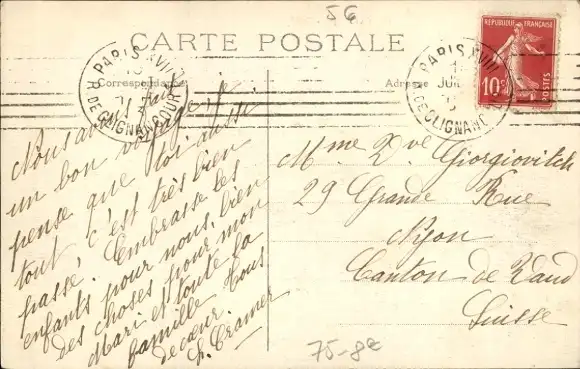 56
CARTE POSTALE
Correspondance
Adresse
PARIS XVIII
R. DE CLIGNANCOURT
PARIS XVIII
R. DE CLIGNANCOURT
JUIL
RÉPUBLIQUE FRANÇAISE
10c
POSTES
Nous avons fait
un bon voyage j'
pense que toi aussi
tout, c'est très bien
passé, Embrasse les
enfants pour nous, bien
des choses pour mon
Mari et toute la
famille Tous
de cœur.
Cramer
Mme Dve Giorgiovitch
29 Grande Rue
Nyon
Canton de Vaud
Suisse
75-8e